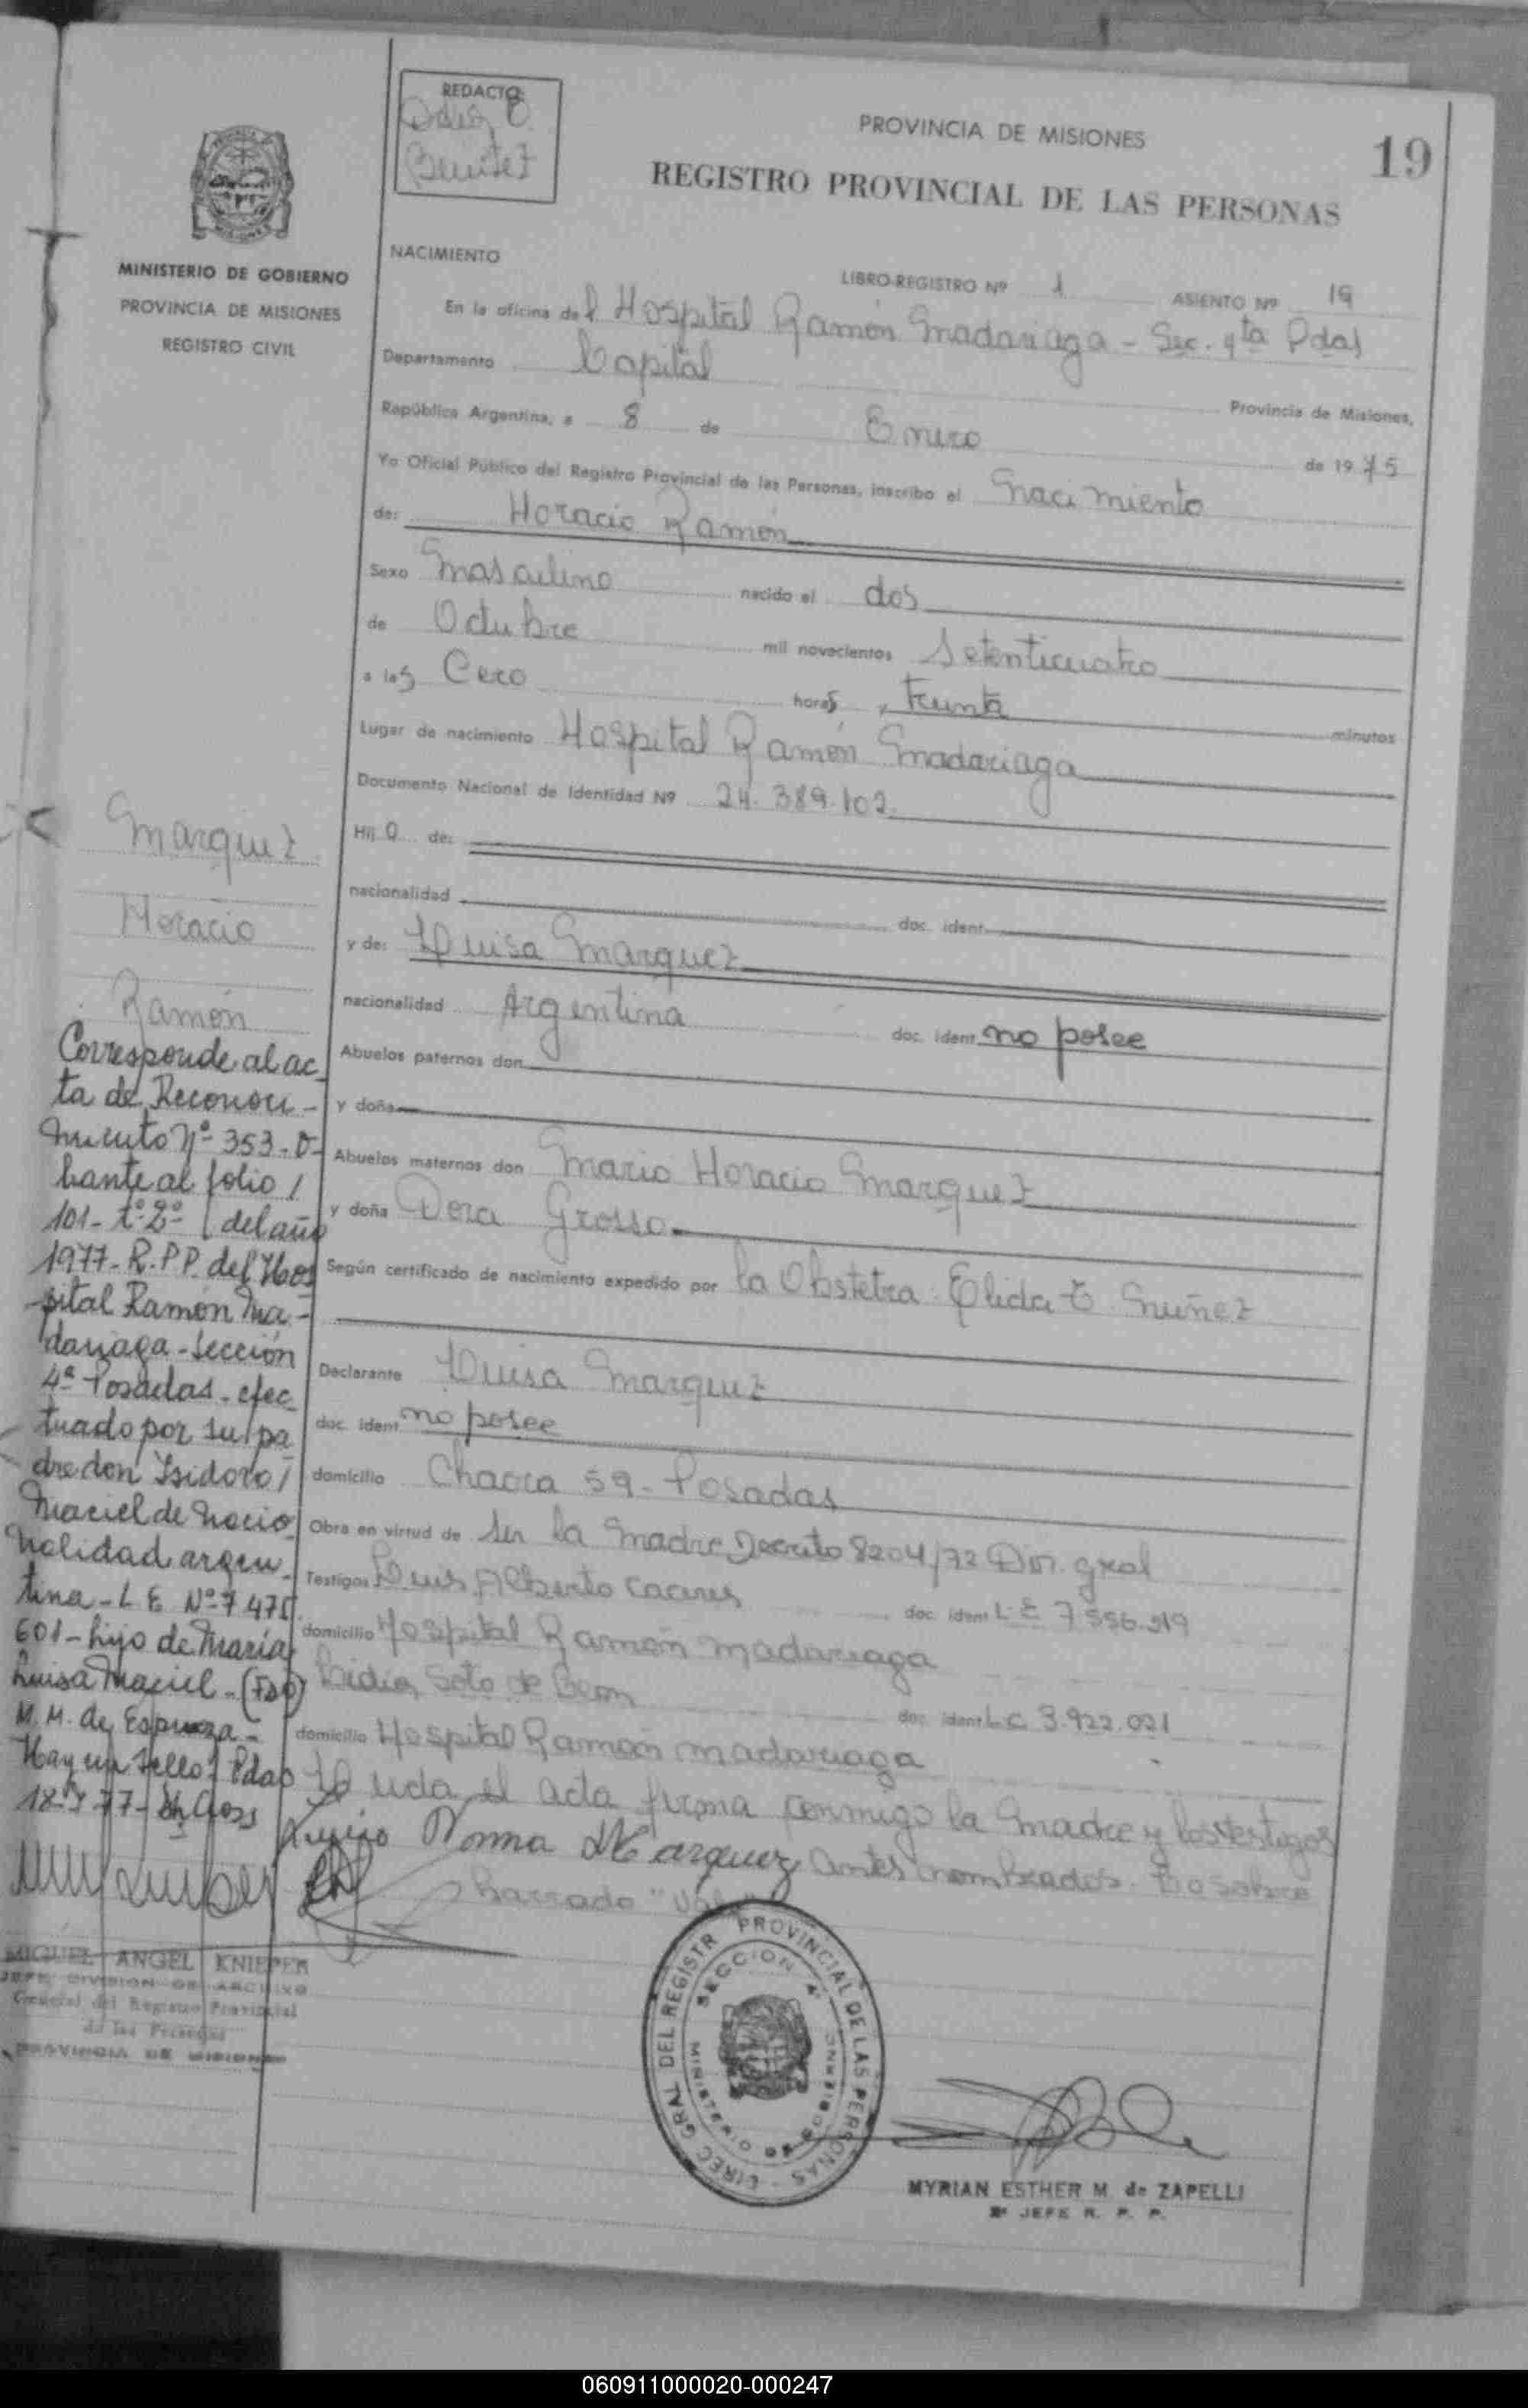 REDACTO
Benitez
PROVINCIA DE MISIONES
19
REGISTRO PROVINCIAL DE LAS PERSONAS
MINISTERIO DE GOBIERNO
PROVINCIA DE MISIONES
REGISTRO CIVIL
NACIMIENTO
LIBRO-REGISTRO Nº 1 ASIENTO Nº 19
En la oficina del Hospital Ramón Madariaga - Sec. 4ta Pdas
Departamento Capital Provincia de Misiones,
República Argentina, a 8 de Enero de 1975
Yo Oficial Público del Registro Provincial de las Personas, inscribo el Nacimiento
de: Horacio Ramón
Sexo Masculino nacido el dos
de Octubre mil novecientos Setenticuatro
a las Cero horas, treinta minutos
Lugar de nacimiento Hospital Ramón Madariaga
Documento Nacional de Identidad Nº 24.389.102.
Hijo de:
nacionalidad doc. ident.
y de: Luisa Marquez
nacionalidad Argentina doc. ident. no posee
Abuelos paternos don
y doña
Abuelos maternos don Mario Horacio Marquez
y doña Dora Grosso
Según certificado de nacimiento expedido por la Obstetra Elida E. Nuñez
Declarante Luisa Marquez
doc. ident. no posee
domicilio Chacra 59 - Posadas
Obra en virtud de ser la Madre Decreto 8204/72 Dir. gral
Testigos Luis Alberto Caceres doc. ident L.E 7.556.519
domicilio Hospital Ramón Madariaga
Lidia Soto de doc. ident L.C 3.922.021
domicilio Hospital Ramón Madariaga
Leida el acta firma conmigo la Madre y los testigos
Norma Marquez antes nombrados. Eº sobre
borrado
Marquez
Horacio
Ramón
Corresponde al ac-
ta de Reconoci-
miento Nº 353 - O-
brante al folio /
101 - tº 2º del año
1977 - R.P.P. del Hos
pital Ramón Ma-
dariaga - Sección
4ª Posadas - efec
tuado por su pa
dre don Isidoro /
Maciel de nacio
nalidad argen-
tina - L E Nº 7 475
601 - hijo de María
Luisa Maciel - (Fdo)
M. M. de Espinoza -
Hay un sello / Pdas
MIGUEL ANGEL KNIEPER
JEFE DIVISION DE ARCHIVO
General del Registro Provincial
de las Personas
PROVINCIA DE MISIONES
DIREC. GRAL. DEL REGISTR PROVINCIAL DE LAS PERSONAS
SECCION 4ª
MINISTERIO DE GOBIERNO
MYRIAN ESTHER M. de ZAPELLI
2º JEFE R. P. P.
060911000020-000247